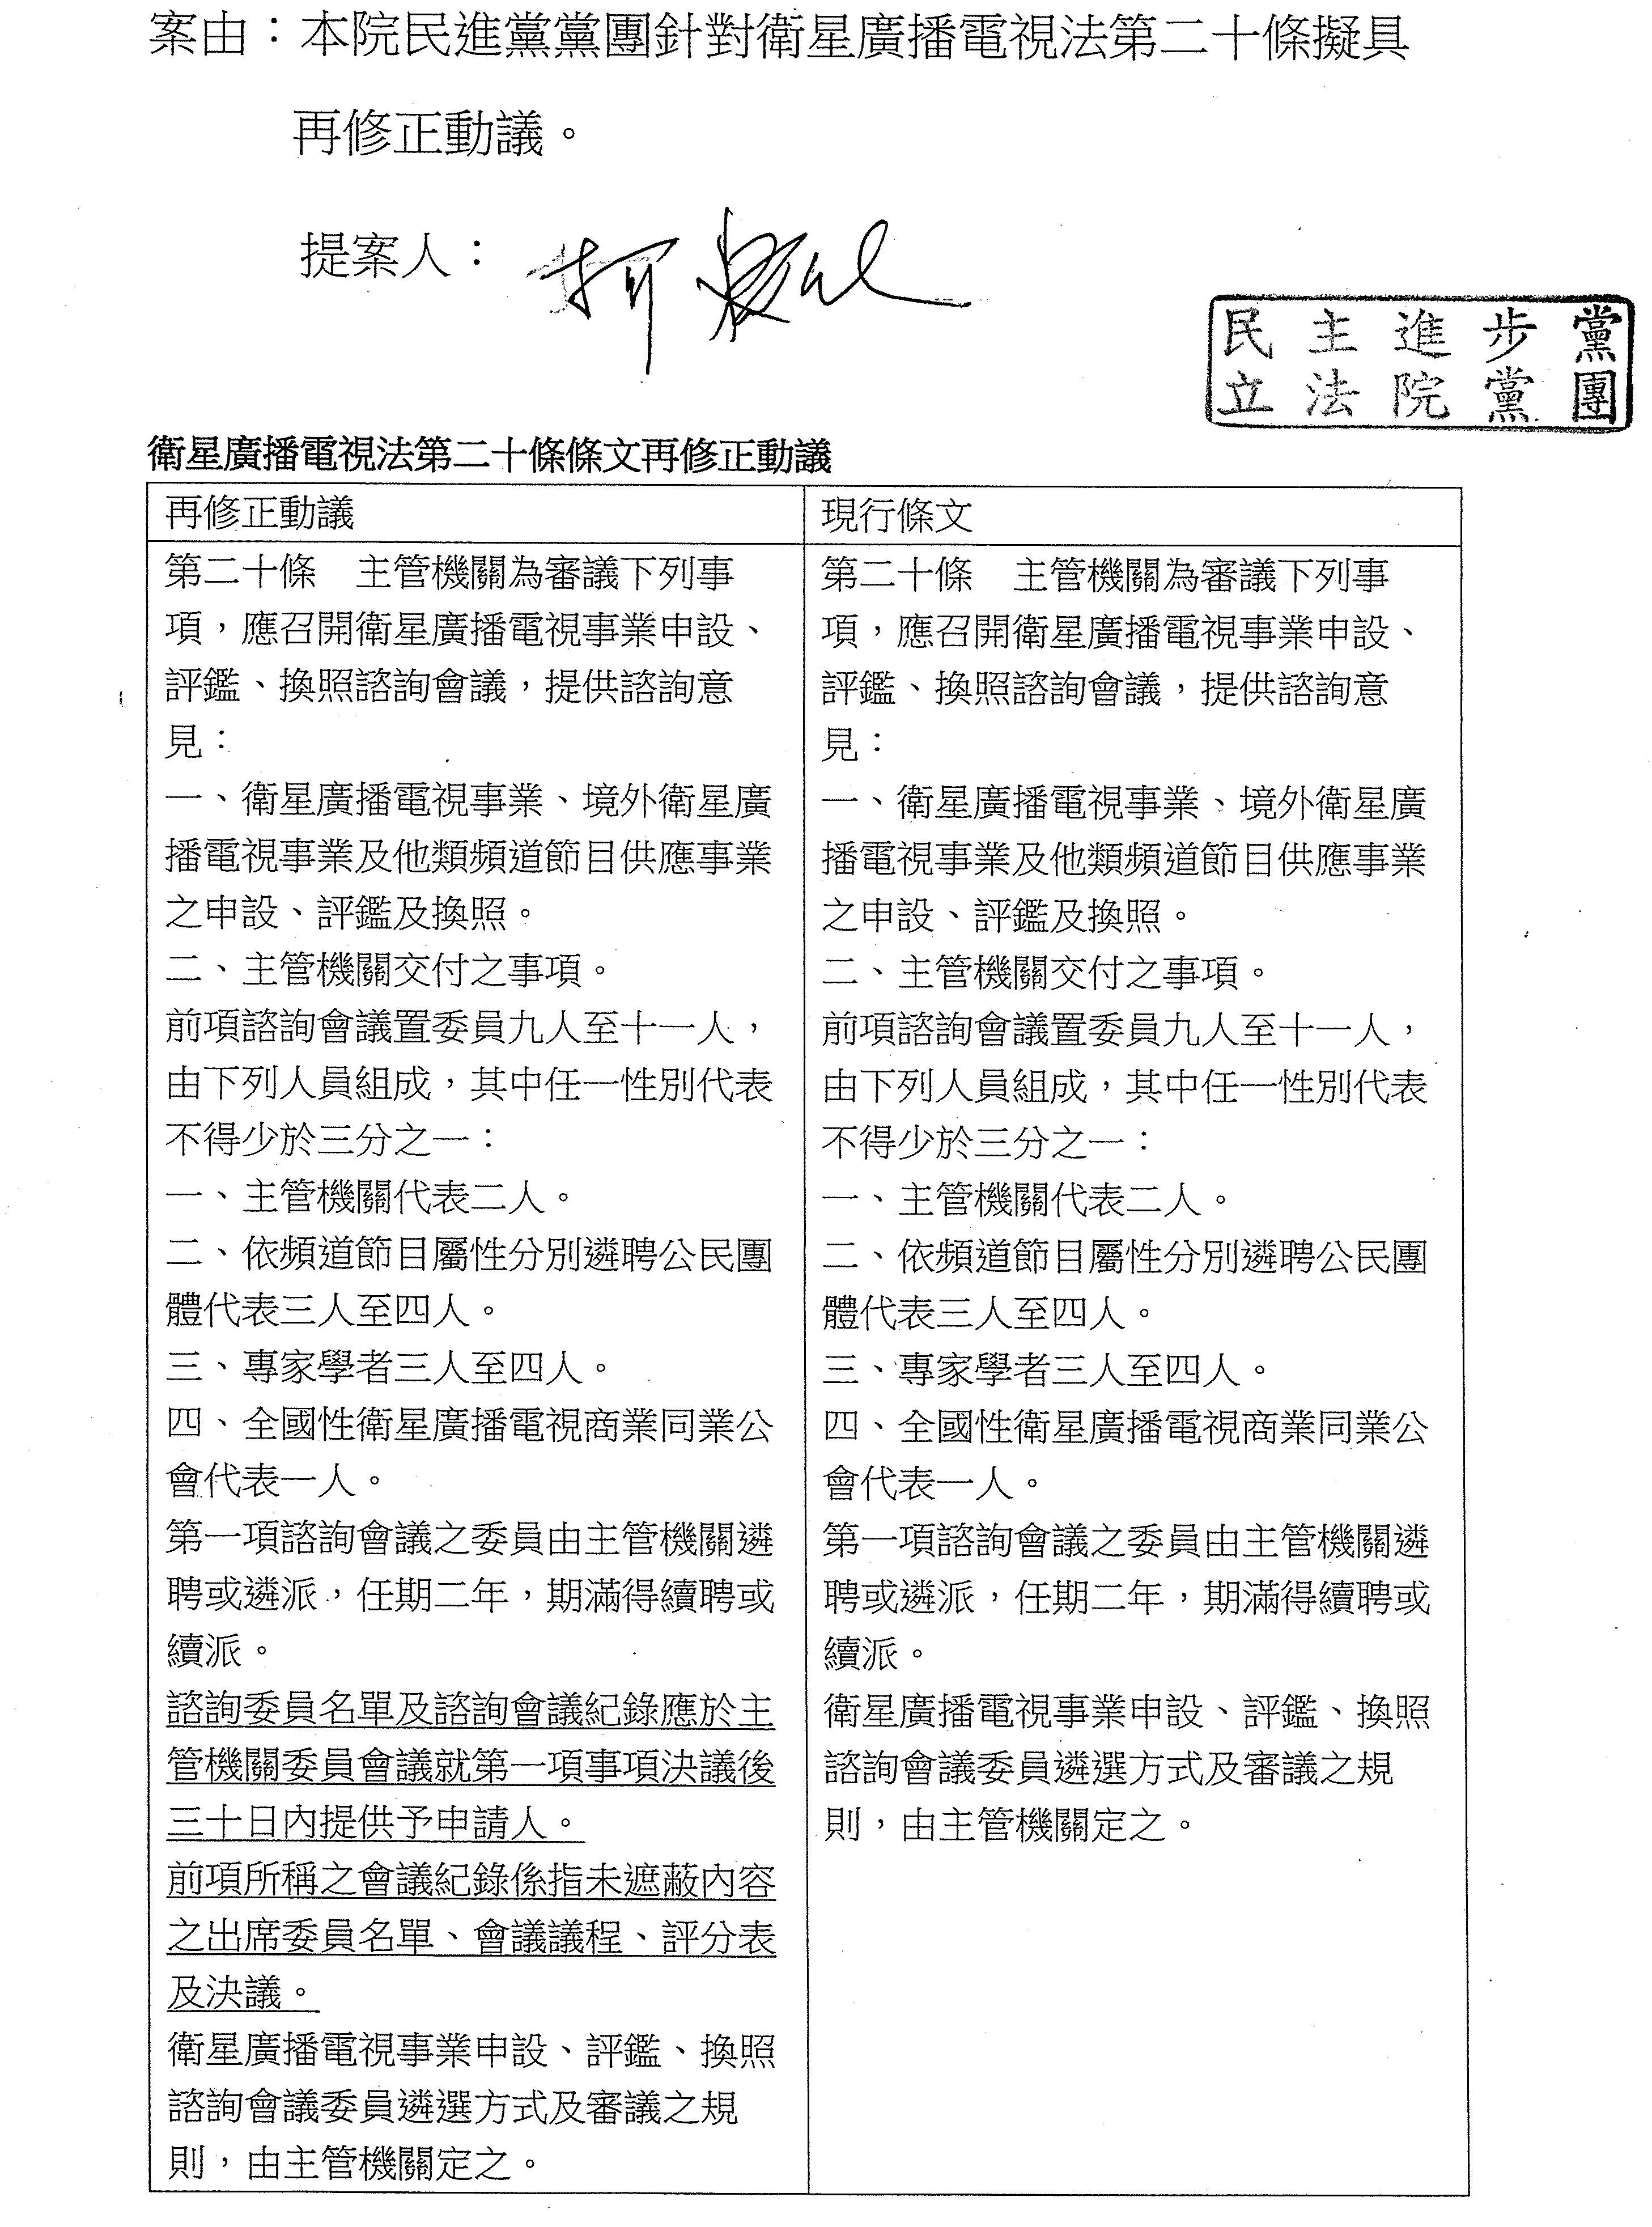 案由：本院民進黨黨團針對衛星廣播電視法第二十條擬具
再修正動議。
提案人：
民主進步黨
立法院黨團
衛星廣播電視法第二十條條文再修正動議
再修正動議
第二十條　主管機關為審議下列事
項，應召開衛星廣播電視事業申設、
評鑑、換照諮詢會議，提供諮詢意
見：
一、衛星廣播電視事業、境外衛星廣
播電視事業及他類頻道節目供應事業
之申設、評鑑及換照。
二、主管機關交付之事項。
前項諮詢會議置委員九人至十一人，
由下列人員組成，其中任一性別代表
不得少於三分之一：
一、主管機關代表二人。
二、依頻道節目屬性分別遴聘公民團
體代表三人至四人。
三、專家學者三人至四人。
四、全國性衛星廣播電視商業同業公
會代表一人。
第一項諮詢會議之委員由主管機關遴
聘或遴派，任期二年，期滿得續聘或
續派。
諮詢委員名單及諮詢會議紀錄應於主
管機關委員會議就第一項事項決議後
三十日內提供予申請人。
前項所稱之會議紀錄係指未遮蔽內容
之出席委員名單、會議議程、評分表
及決議。
衛星廣播電視事業申設、評鑑、換照
諮詢會議委員遴選方式及審議之規
則，由主管機關定之。
現行條文
第二十條　主管機關為審議下列事
項，應召開衛星廣播電視事業申設、
評鑑、換照諮詢會議，提供諮詢意
見：
一、衛星廣播電視事業、境外衛星廣
播電視事業及他類頻道節目供應事業
之申設、評鑑及換照。
二、主管機關交付之事項。
前項諮詢會議置委員九人至十一人，
由下列人員組成，其中任一性別代表
不得少於三分之一：
一、主管機關代表二人。
二、依頻道節目屬性分別遴聘公民團
體代表三人至四人。
三、專家學者三人至四人。
四、全國性衛星廣播電視商業同業公
會代表一人。
第一項諮詢會議之委員由主管機關遴
聘或遴派，任期二年，期滿得續聘或
續派。
衛星廣播電視事業申設、評鑑、換照
諮詢會議委員遴選方式及審議之規
則，由主管機關定之。